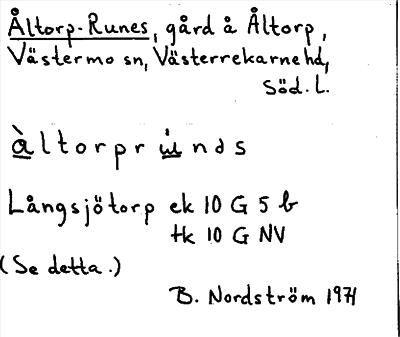 Åltorp-Runes, gård å Åltorp,
Västermo sn, Västerrekarne hd,
Söd. L.
àltorprùnəs
Långsjötorp ek 10 G 5 b
tk 10 G NV
(Se detta.)
B. Nordström 1971